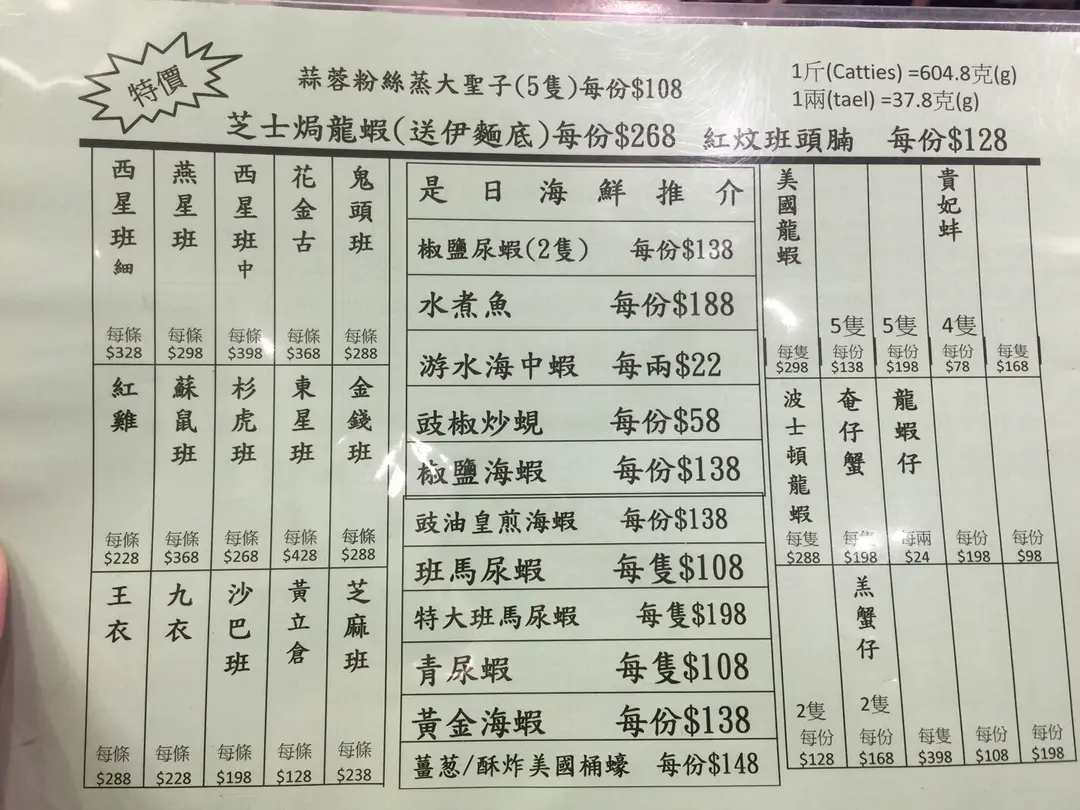 特價
蒜蓉粉絲蒸大聖子(5隻)每份$108
1斤(Catties) =604.8克(g)
1兩(tael) =37.8克(g)
芝士焗龍蝦(送伊麵底)每份$268 紅炆班頭腩 每份$128
西星班細 每條 $328
燕星班 每條 $298
西星班中 每條 $398
花金古 每條 $368
鬼頭班 每條 $288
紅雞 每條 $228
蘇鼠班 每條 $368
杉虎班 每條 $268
東星班 每條 $428
金錢班 每條 $288
王衣 每條 $288
九衣 每條 $228
沙巴班 每條 $198
黃立倉 每條 $128
芝麻班 每條 $238
是日海鮮推介
椒鹽尿蝦(2隻) 每份$138
水煮魚 每份$188
游水海中蝦 每兩$22
豉椒炒蜆 每份$58
椒鹽海蝦 每份$138
豉油皇煎海蝦 每份$138
班馬尿蝦 每隻$108
特大班馬尿蝦 每隻$198
青尿蝦 每隻$108
黃金海蝦 每份$138
薑葱/酥炸美國桶蠔 每份$148
美國龍蝦 每隻 $298
5隻 每份 $138
5隻 每份 $198
貴妃蚌 4隻 每份 $78
每隻 $168
波士頓龍蝦 每隻 $288
奄仔蟹 每隻 $198
龍蝦仔 每兩 $24
每份 $198
每份 $98
2隻 每份 $128
羔蟹仔 2隻 每份 $168
每隻 $398
每份 $108
每份 $198